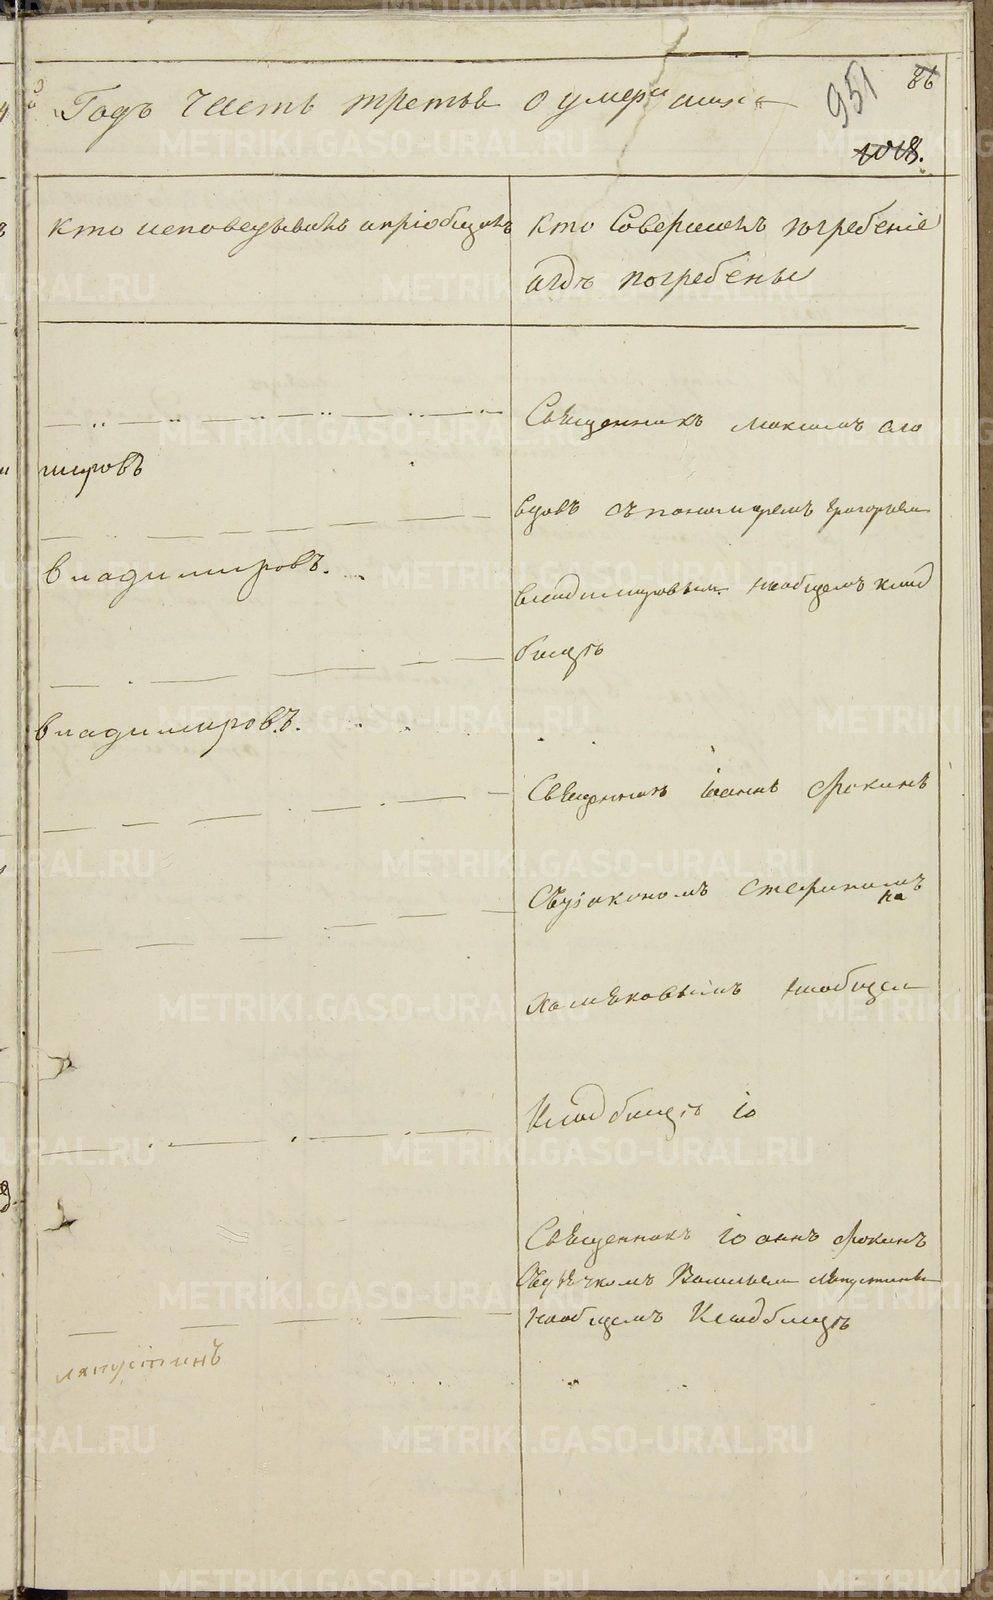 Годъ Часть третья о умершихъ
951
86
1018.
кто исповедывалъ ипріобщалъ
кто Совершалъ погребеніе
игдѣ погребены
Священникъ Максимъ
мировъ
съ пономаремъ Григорьем
Владимировъ.
Владимировым наобщемъ клад
бищѣ
Владимировъ.
Священникъ Іоаннъ Фокинъ
Съдіакономъ Стефаномъ
на
Хомяковымъ наобщем
Кладбищѣ
Священникъ Іоаннъ Фокинъ
Съдьячкомъ Васильем Ляпустиным
Наобщемъ Кладбищѣ
ляпустинъ
METRIKI.GASO-URAL.RU